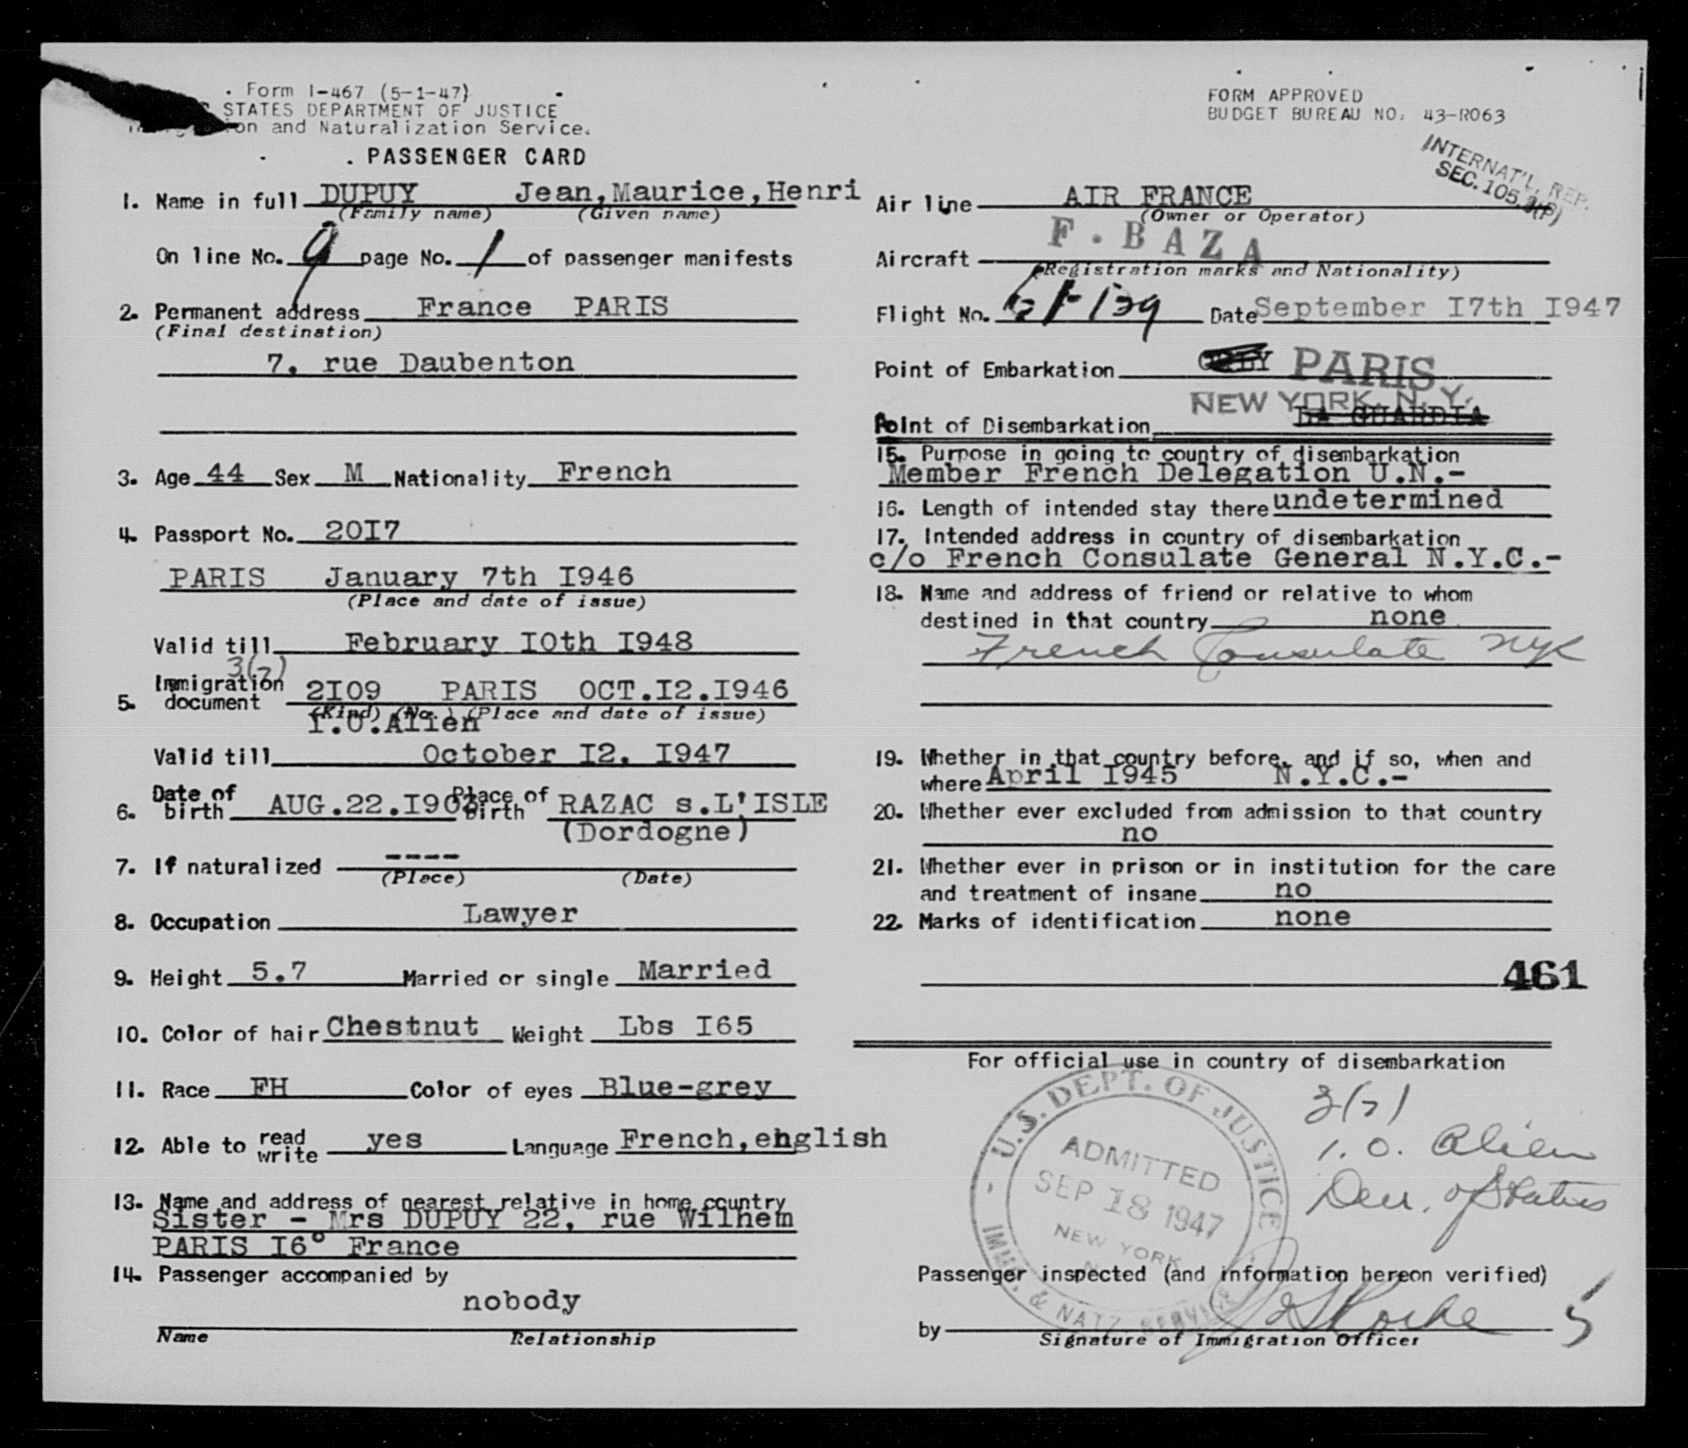 Form I-467 (5-1-47)
STATES DEPARTMENT OF JUSTICE
and Naturalization Service.
PASSENGER CARD
1. Name in full DUPUY Jean,Maurice,Henri
(Family name) (Given name)
On line No. 9 page No. 1 of passenger manifests
2. Permanent address France PARIS
(Final destination)
7, rue Daubenton
3. Age 44 Sex M Nationality French
4. Passport No. 20I7
PARIS January 7th I946
(Place and date of issue)
Valid till February I0th I948
3(7)
5. Immigration document 2I09 PARIS OCT.I2.I946
(Kind) (No.) (Place and date of issue)
I.O.Alien
Valid till October I2. I947
6. Date of birth AUG.22.I903 Place of birth RAZAC s.L'ISLE
(Dordogne)
7. If naturalized ----
(Place) (Date)
8. Occupation Lawyer
9. Height 5.7 Married or single Married
10. Color of hair Chestnut Weight Lbs I65
11. Race FH Color of eyes Blue-grey
12. Able to read write yes Language French,english
13. Name and address of nearest relative in home country
Sister - Mrs DUPUY 22, rue Wilhem
PARIS I6° France
14. Passenger accompanied by
nobody
Name Relationship
FORM APPROVED
BUDGET BUREAU NO. 43-R063
INTERNAT'L. REP.
SEC. 105.3(P)
Air line AIR FRANCE
(Owner or Operator)
Aircraft F.BAZA
(Registration marks and Nationality)
Flight No. Date September I7th I947
Point of Embarkation ORLY PARIS
NEW YORK, N.Y.
Point of Disembarkation LA GUARDIA
15. Purpose in going to country of disembarkation
Member French Delegation U.N.-
16. Length of intended stay there undetermined
17. Intended address in country of disembarkation
c/o French Consulate General N.Y.C.-
18. Name and address of friend or relative to whom
destined in that country none
French Consulate NYC
19. Whether in that country before, and if so, when and
where April I945 N.Y.C.-
20. Whether ever excluded from admission to that country
no
21. Whether ever in prison or in institution for the care
and treatment of insane no
22. Marks of identification none
461
For official use in country of disembarkation
3(7)
I.O. Alien
Den. of Status
U.S. DEPT. OF JUSTICE
ADMITTED
SEP 18 1947
NEW YORK
IMM. & NATZ. SERVICE
Passenger inspected (and information hereon verified)
by
Signature of Immigration Officer
5